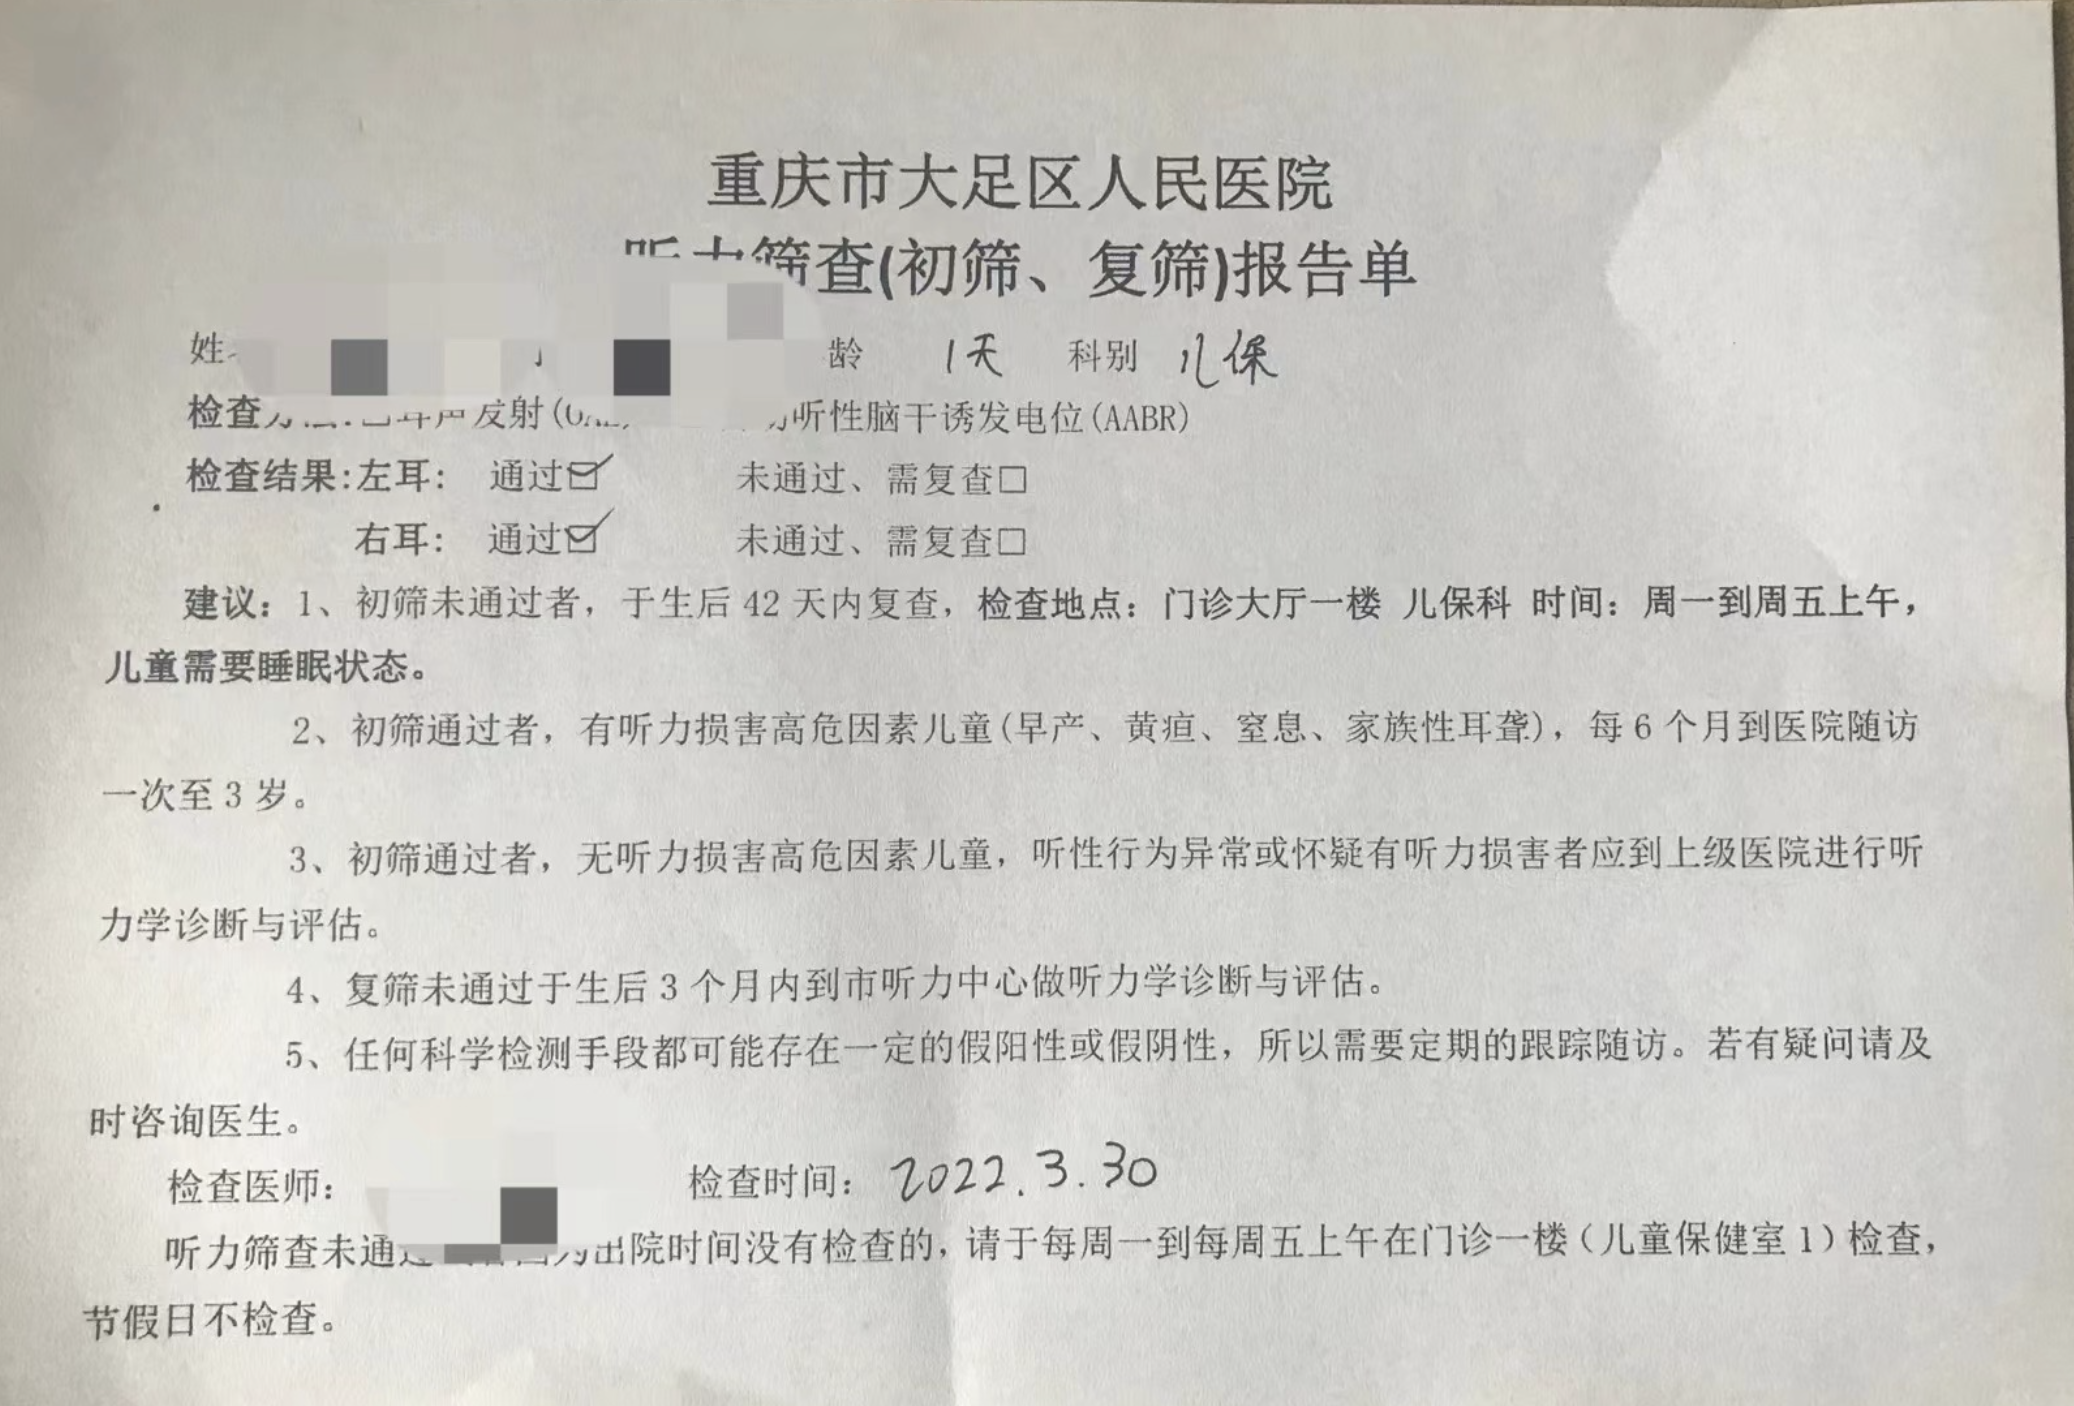 重庆市大足区人民医院
听力筛查(初筛、复筛)报告单
姓 龄 1天 科别 儿保
检查 耳声发射( 听性脑干诱发电位(AABR)
检查结果:左耳: 通过☑ 未通过、需复查□
右耳: 通过☑ 未通过、需复查□
建议：1、初筛未通过者，于生后 42 天内复查，检查地点：门诊大厅一楼 儿保科 时间：周一到周五上午，
儿童需要睡眠状态。
2、初筛通过者，有听力损害高危因素儿童(早产、黄疸、窒息、家族性耳聋)，每 6 个月到医院随访
一次至 3 岁。
3、初筛通过者，无听力损害高危因素儿童，听性行为异常或怀疑有听力损害者应到上级医院进行听
力学诊断与评估。
4、复筛未通过于生后 3 个月内到市听力中心做听力学诊断与评估。
5、任何科学检测手段都可能存在一定的假阳性或假阴性，所以需要定期的跟踪随访。若有疑问请及
时咨询医生。
检查医师： 检查时间： 2022.3.30
听力筛查未通过 出院时间没有检查的，请于每周一到每周五上午在门诊一楼（儿童保健室 1）检查，
节假日不检查。